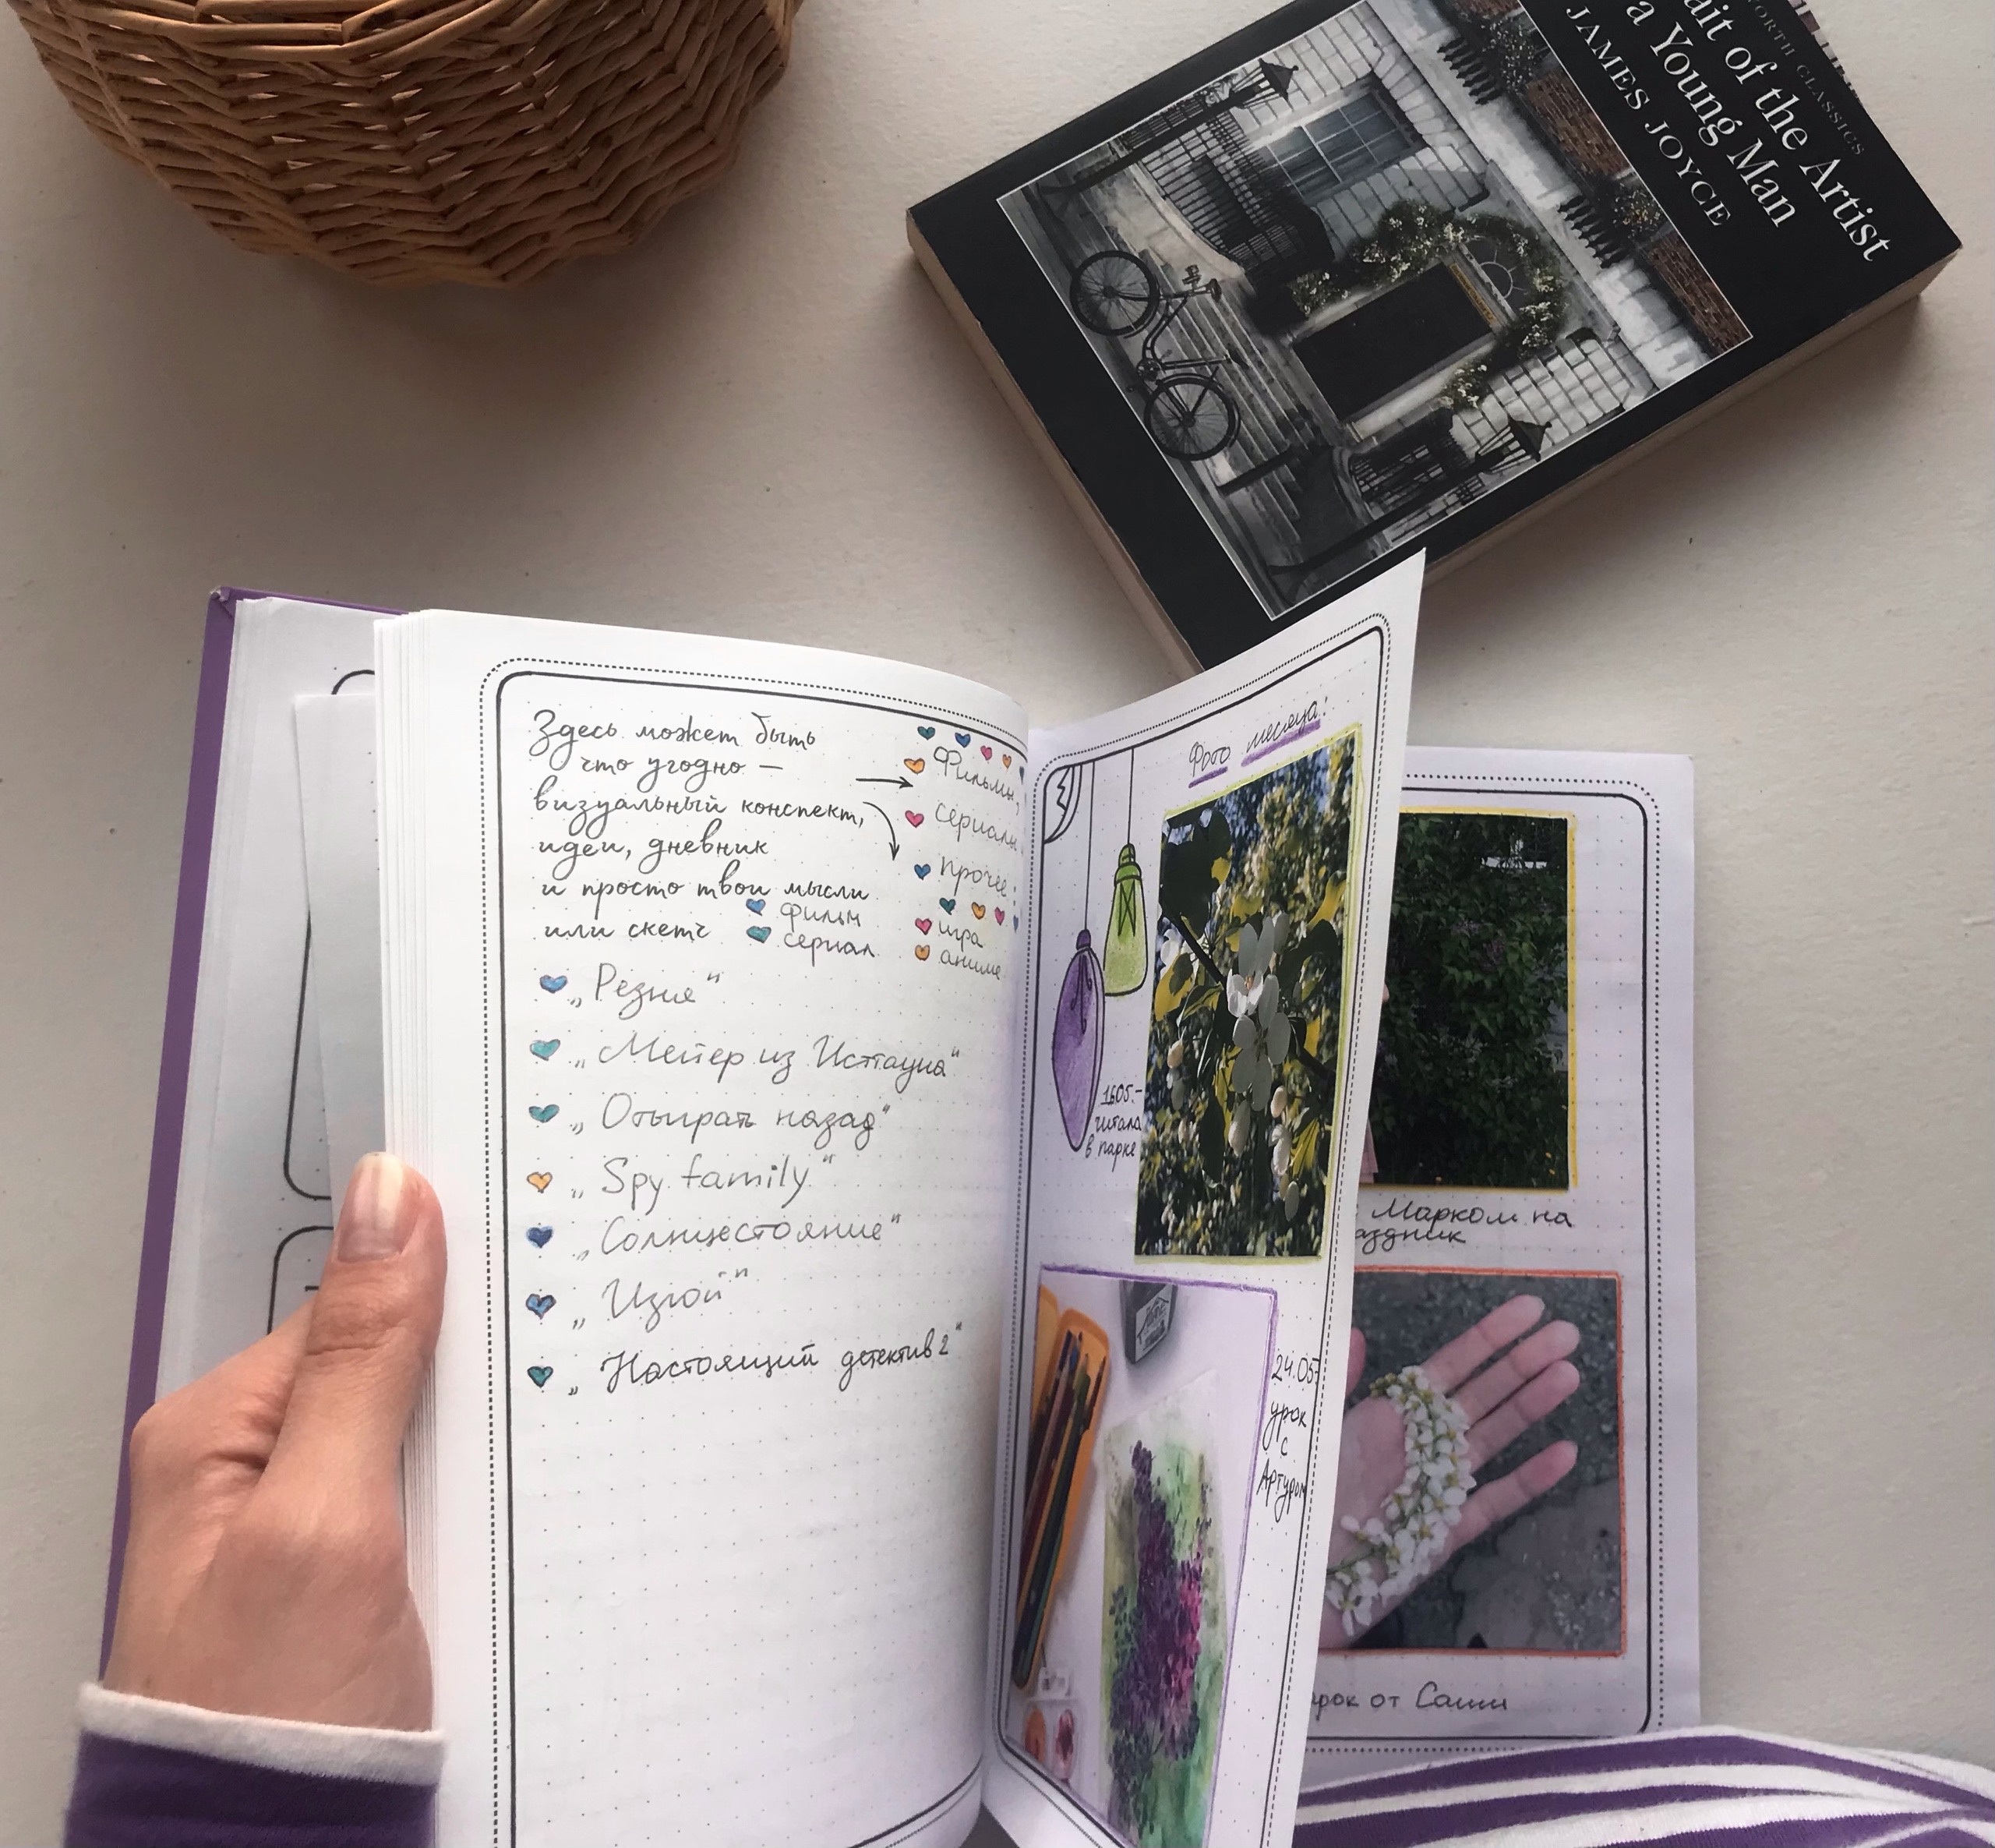 ORTH CLASSICS
ait of the Artist
a Young Man
JAMES JOYCE
Здесь может быть
что угодно —
визуальный конспект,
идеи, дневник
и просто твои мысли
или скетч
Фильмы,
сериалы
прочее:
фильм
сериал
игра
аниме
„Резня“
„Мейер из Исттауна“
„Отыграть назад“
„Spy family“
„Солнцестояние“
„Изгой“
„Настоящий детектив 2“
Фото месяца:
читала
в парке
24.05-
урок
с
Артуром
Марком на
аздник
арок от Саши